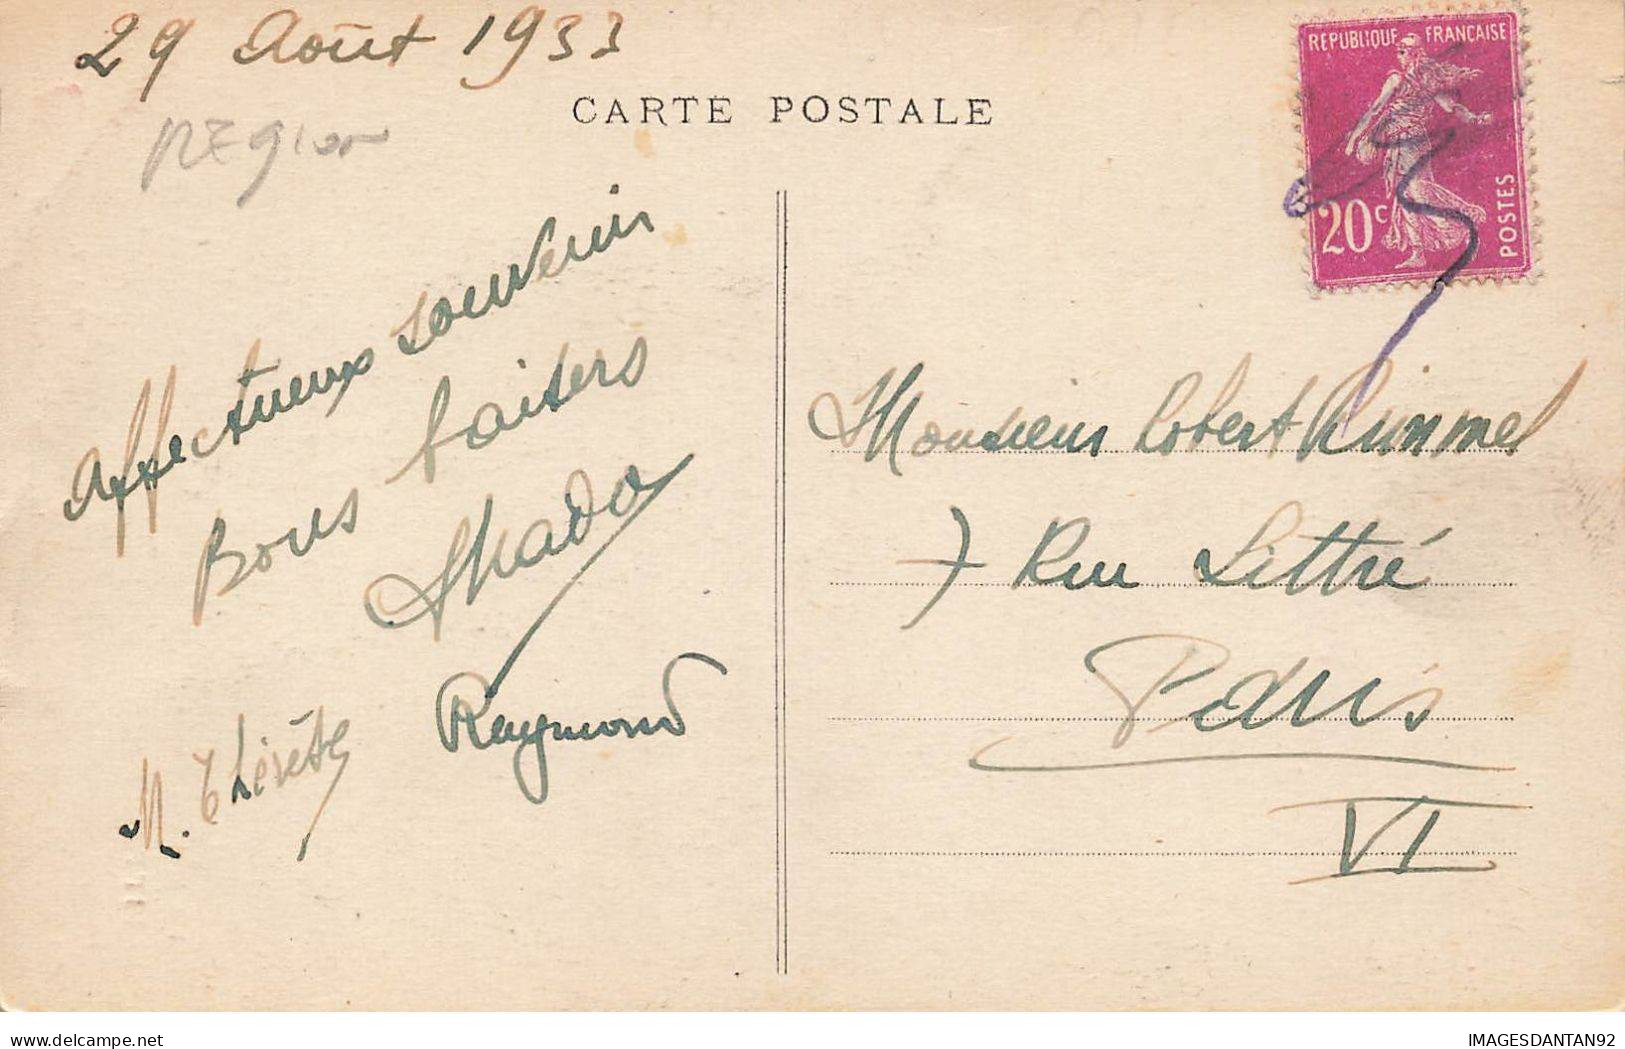 29 Août 1933
CARTE POSTALE
Région
Affectueux souvenir
Bons baisers
Mado
Raymond
M. Thérèse
REPUBLIQUE FRANÇAISE
20c
POSTES
Monsieur Robert Rimmel
7 Rue Littré
Paris
VI
delcampe.net
IMAGESDANTAN92